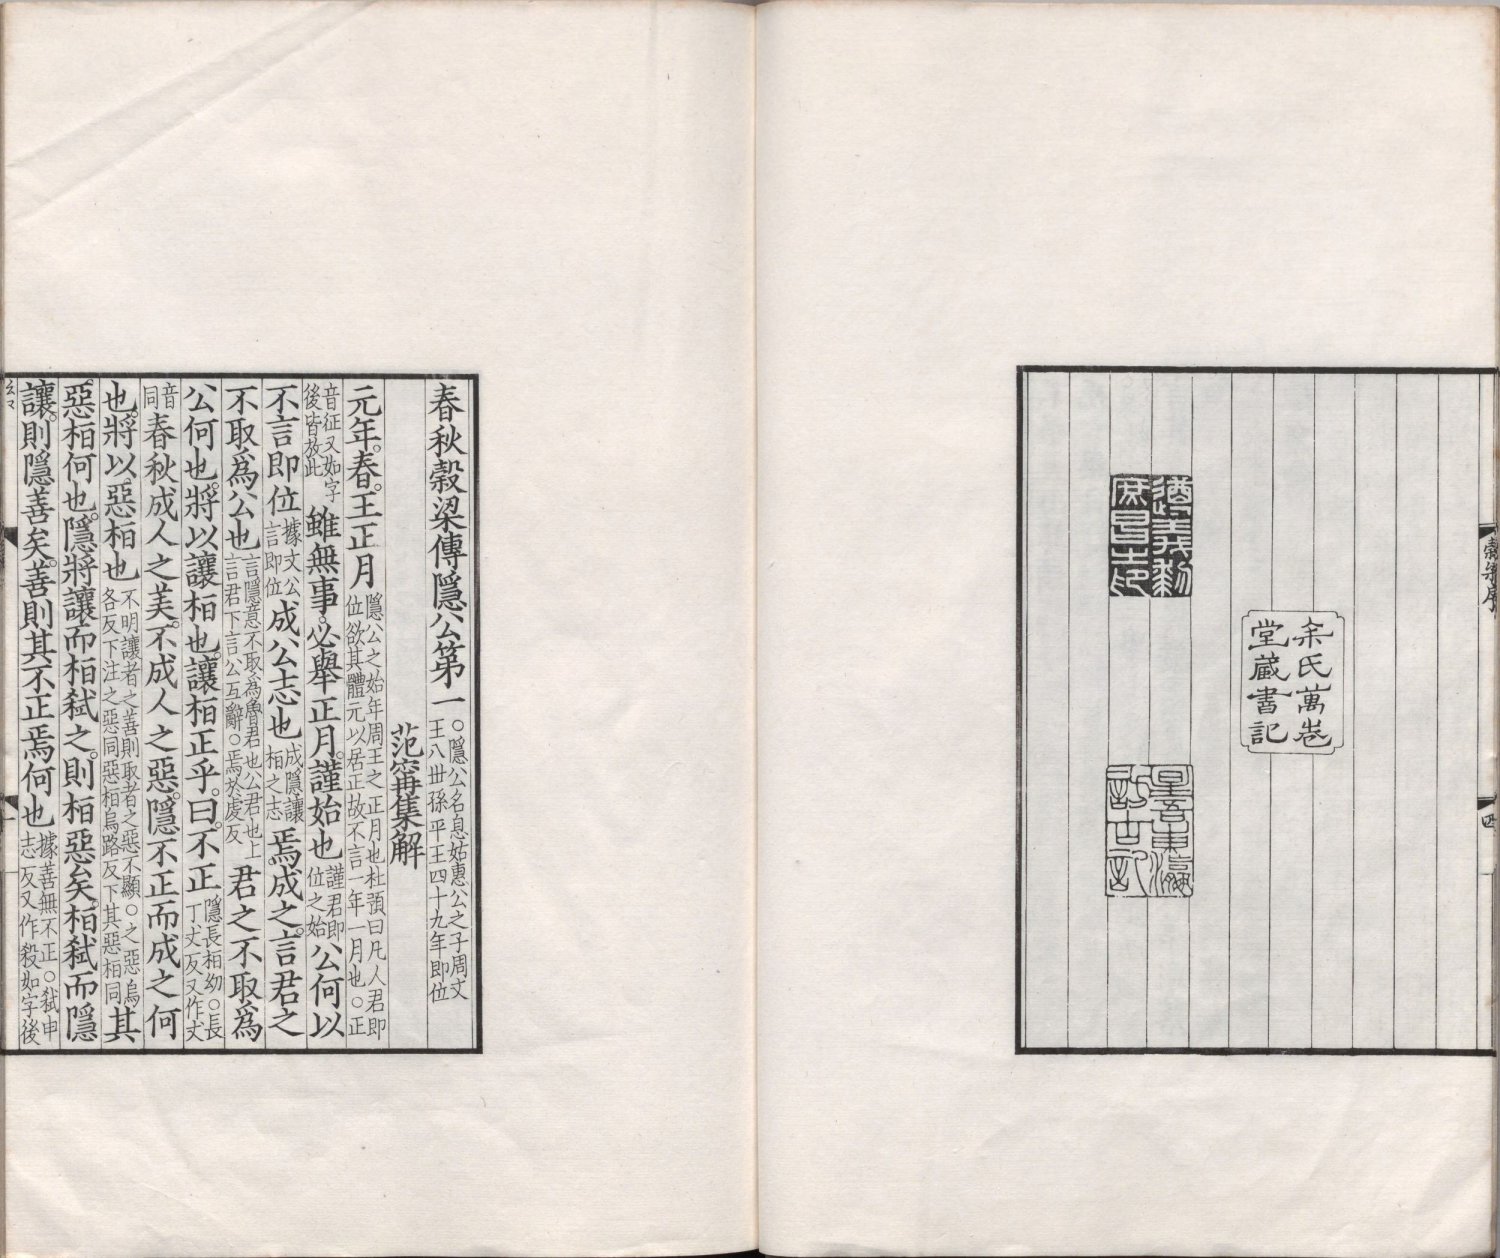 穀梁序
四
余氏萬卷
堂藏書記
遵義黎
庶昌之印
星吾東瀛
訪古記
春秋穀梁傳隱公第一 ○隱公名息姑惠公之子周文王八世孫平王四十九年即位
范甯集解
元年。春。王正月 隱公之始年周王之正月也杜預曰凡人君即位欲其體元以居正故不言一年一月也○正
音征又如字後皆放此 雖無事。必舉正月。謹始也 謹君即位之始 公何以
不言即位 據文公言即位 成公志也 成隱讓桓之志 焉。成之。言君之
不取爲公也 言隱意不取為魯君也公君也上言君下言公互辭○焉於虔反 君之不取爲
公何也。將以讓桓也。讓桓正乎。曰。不正 隱長桓幼○長丁丈反又作丈
音同 春秋成人之美。不成人之惡。隱不正而成之何
也。將以惡桓也 不明讓者之善則取者之惡不顯○之惡烏各反下注之惡同惡桓烏路反下其惡桓同 其
惡桓何也。隱將讓而桓弒之。則桓惡矣。桓弒而隱
讓。則隱善矣。善則其不正焉何也 據善無不正○弒申志反又作殺如字後